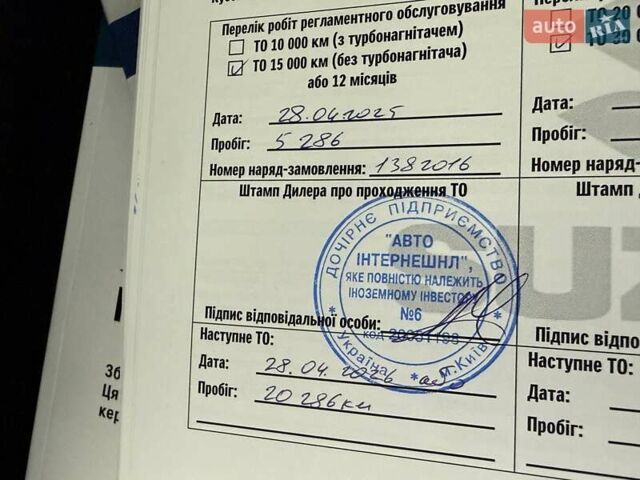 Перелік робіт регламентного обслуговування
ТО 10 000 км (з турбонагнітачем)
ТО 15 000 км (без турбонагнітача)
або 12 місяців
Дата: 28.04.2025
Пробіг: 5 286
Номер наряд-замовлення: 1382016
Штамп Дилера про проходження ТО
ДОЧІРНЄ ПІДПРИЄМСТВО
"АВТО
ІНТЕРНЕШНЛ",
ЯКЕ ПОВНІСТЮ НАЛЕЖИТЬ
ІНОЗЕМНОМУ ІНВЕСТОРУ
№6
код
Україна * м.Київ
Підпис відповідальної особи:
Наступне ТО:
Дата: 28.04.2026 або
Пробіг: 20 286км
auto RIA
ТО 20
Дата:
Пробіг:
Номер наряд-
Штамп
Підпис відпов
Наступне ТО:
Дата:
Пробіг:
SUZ
Зб
Ця
кер